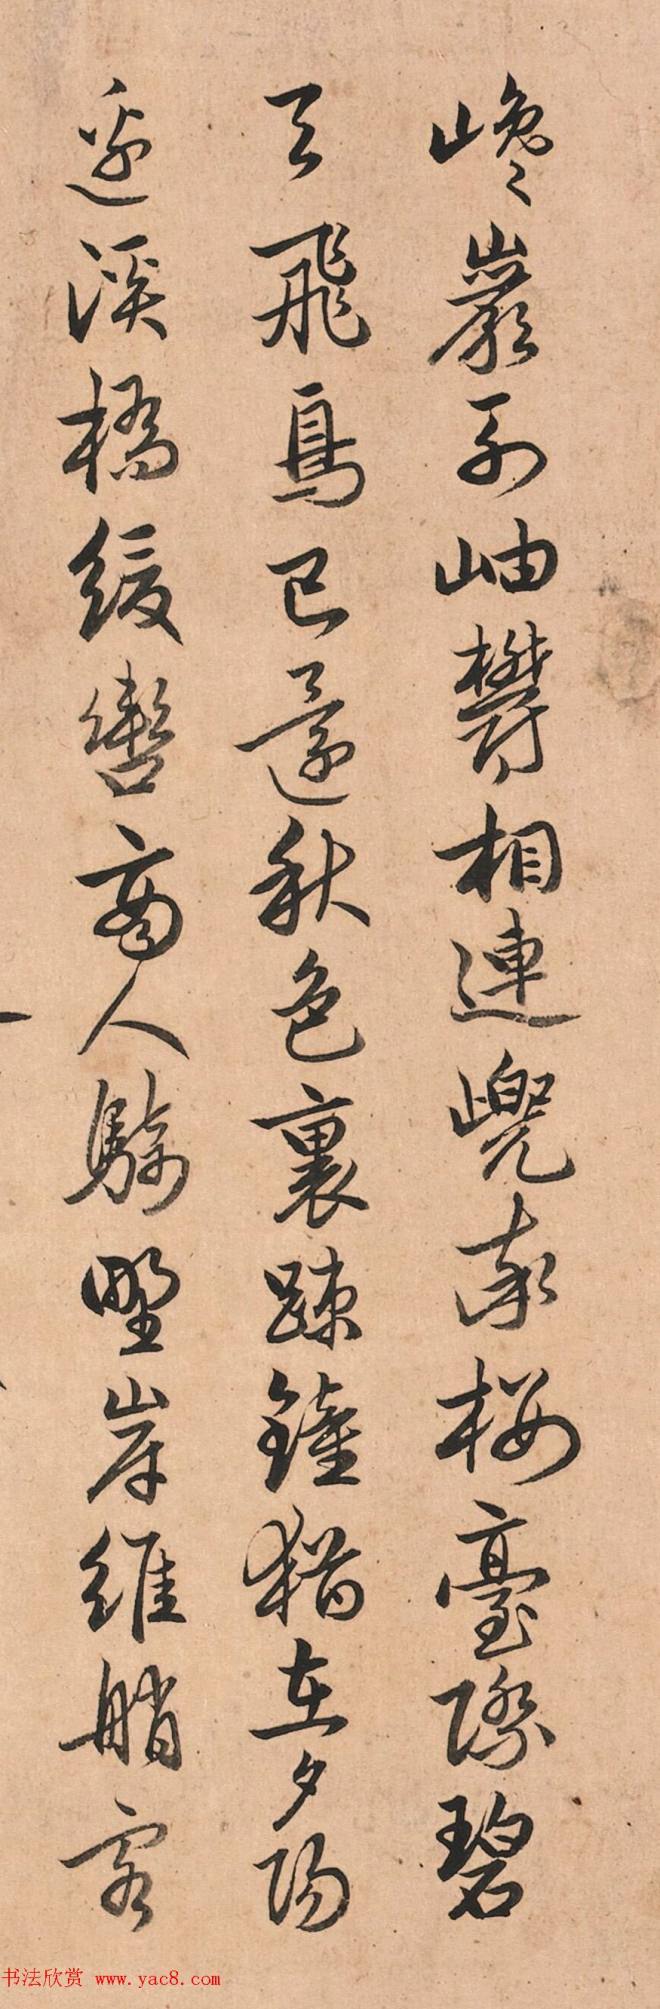 巉巉巖列岫鬱相連巍率樓臺際碧
天飛鳥已還秋色裏疎鐘猶在夕陽
邊溪橋緩轡商人騎野岸維艄客
书法欣赏 www.yac8.com